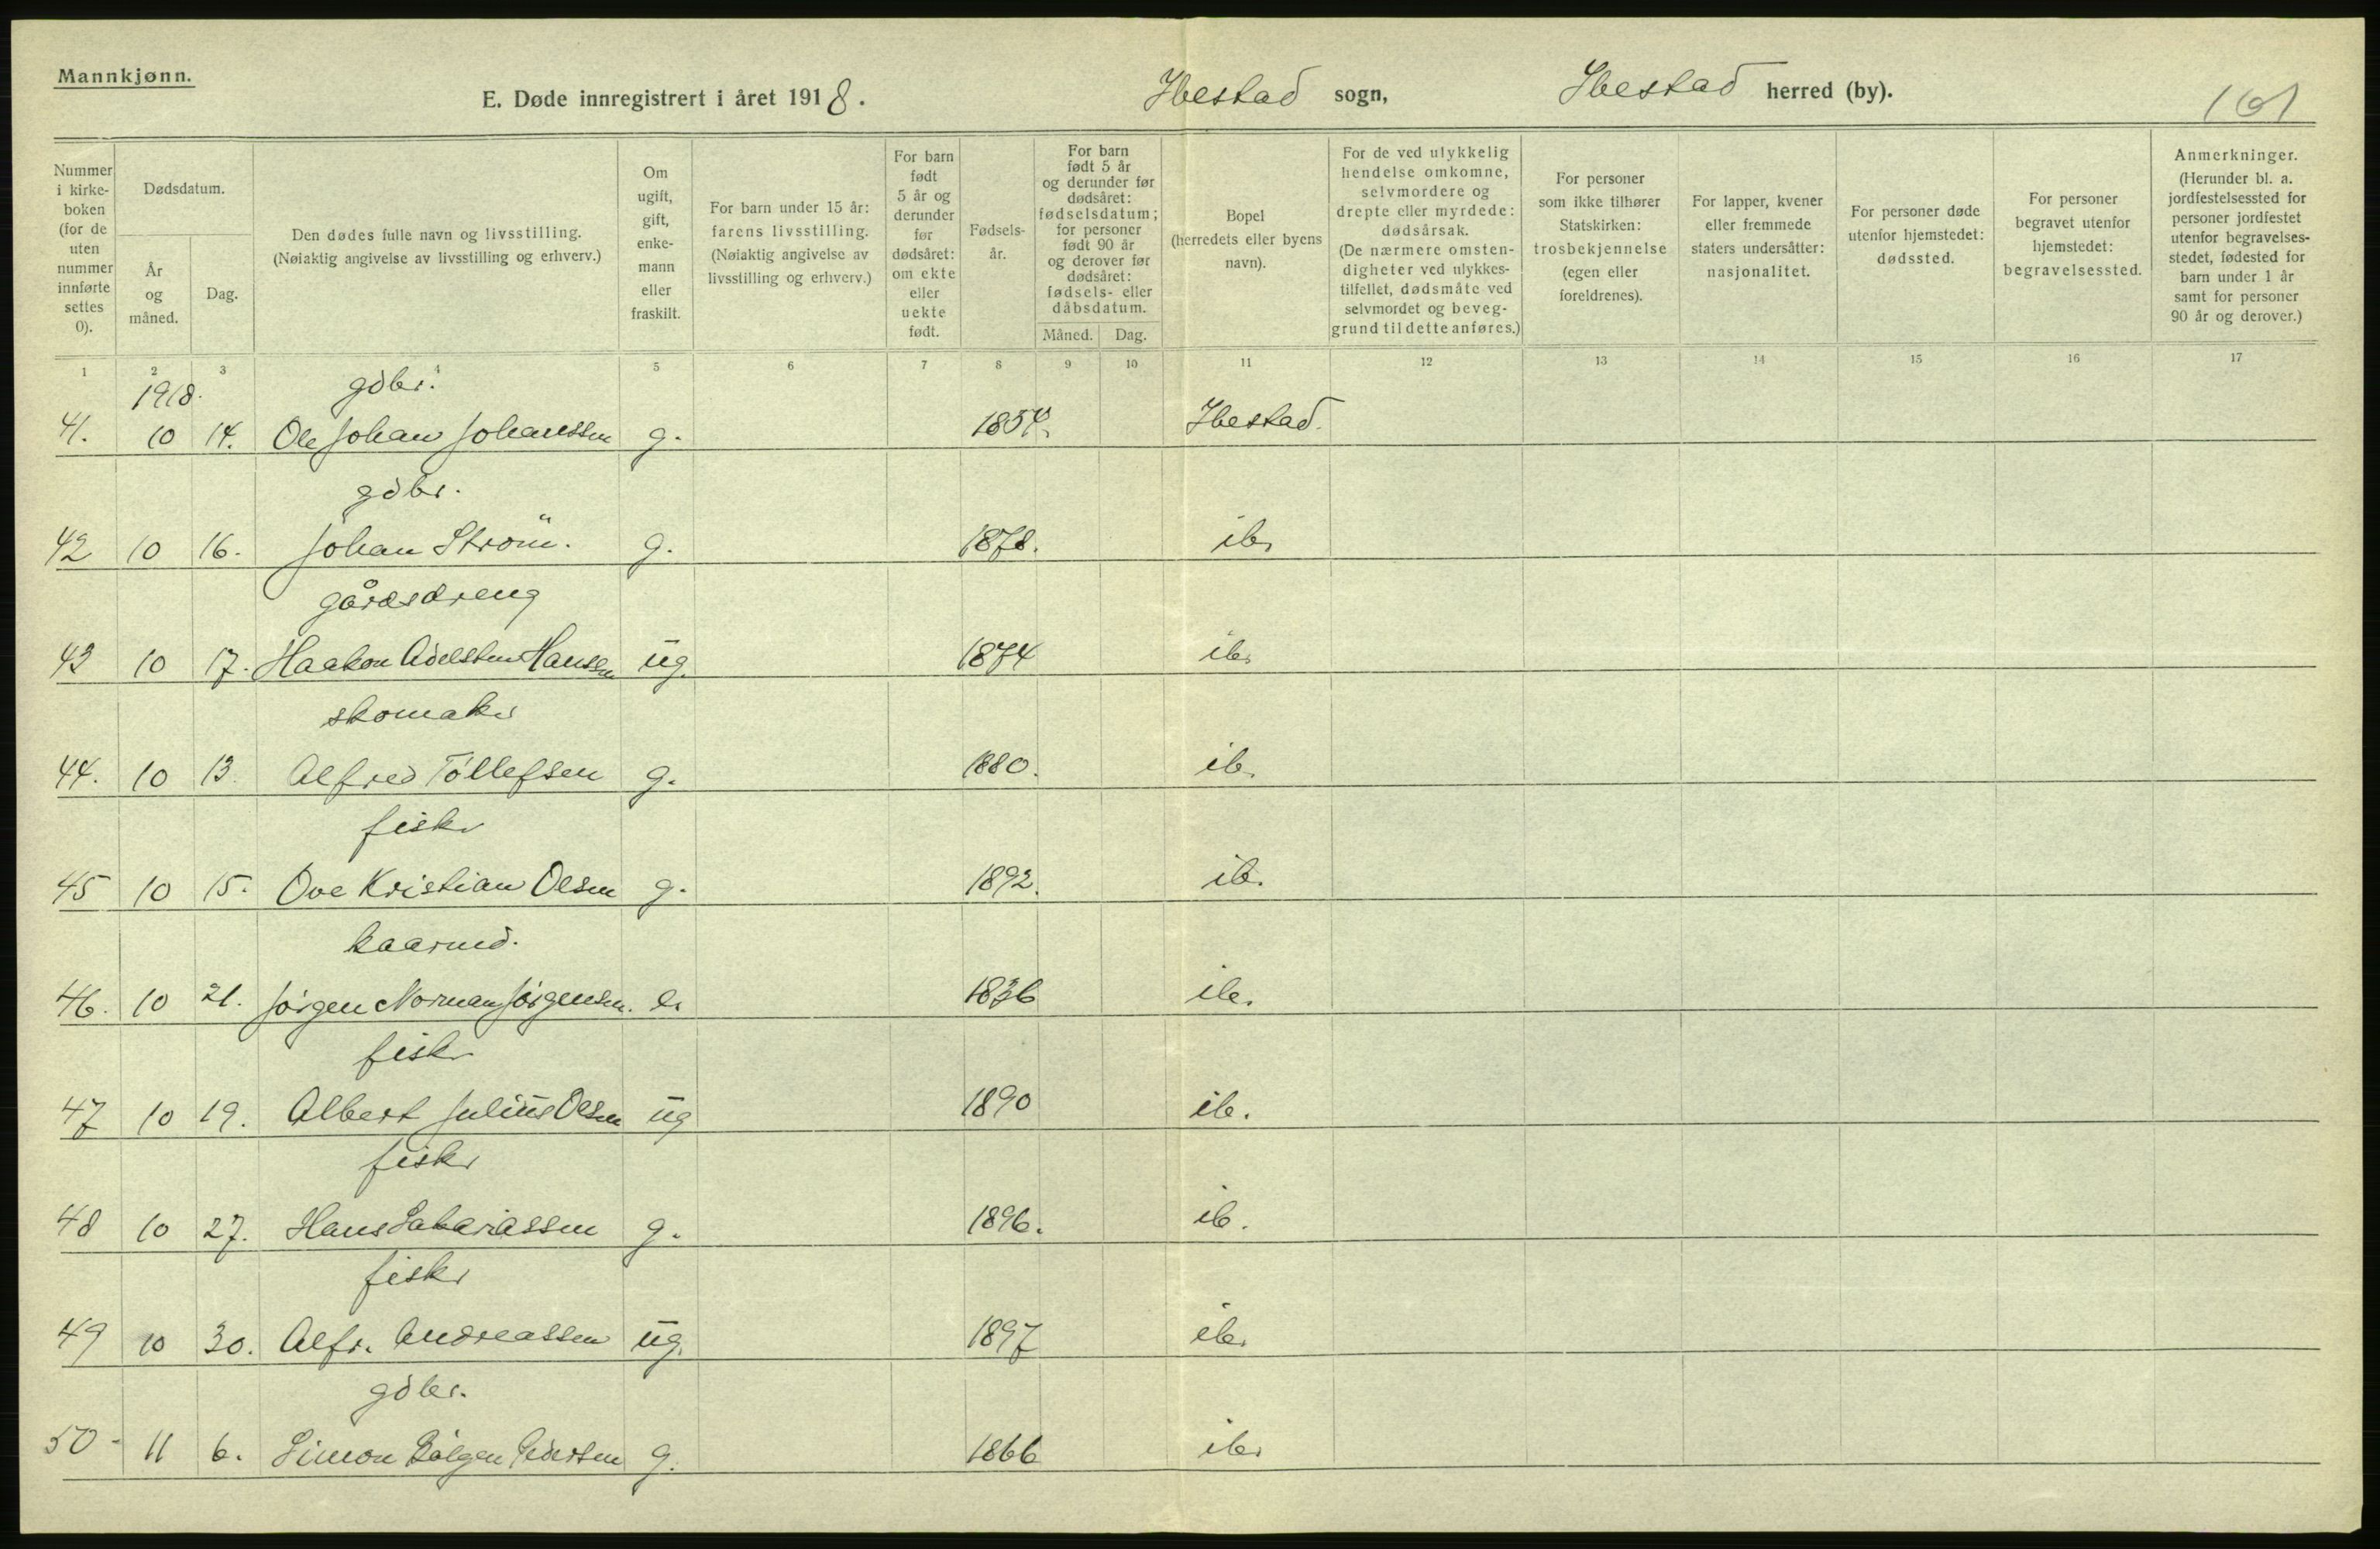 Mannkjønn.
E. Døde innregistrert i året 1918. Ibestad sogn, Ibestad herred (by). 101
Nummer i kirke-boken (for de uten nummer innførte settes 0).
Dødsdatum.
År og måned.
Dag.
Den dødes fulle navn og livsstilling.
(Nøiaktig angivelse av livsstilling og erhverv.)
Om ugift, gift, enke-mann eller fraskilt.
For barn under 15 år: farens livsstilling.
(Nøiaktig angivelse av livsstilling og erhverv.)
For barn født 5 år og derunder før dødsåret: om ekte eller uekte født.
Fødsels-år.
For barn født 5 år og derunder før dødsåret: fødselsdatum; for personer født 90 år og derover før dødsåret: fødsels- eller dåbsdatum.
Måned. Dag.
Bopel (herredets eller byens navn).
For de ved ulykkelig hendelse omkomne, selvmordere og drepte eller myrdede: dødsårsak.
(De nærmere omsten-digheter ved ulykkes-tilfellet, dødsmåte ved selvmordet og beveg-grund til dette anføres.)
For personer som ikke tilhører Statskirken: trosbekjennelse (egen eller foreldrenes).
For lapper, kvener eller fremmede staters undersåtter: nasjonalitet.
For personer døde utenfor hjemstedet: dødssted.
For personer begravet utenfor hjemstedet: begravelsessted.
Anmerkninger.
(Herunder bl. a. jordfestelsessted for personer jordfestet utenfor begravelses-stedet, fødested for barn under 1 år samt for personer 90 år og derover.)
1 2 3 4 5 6 7 8 9 10 11 12 13 14 15 16 17
1918. gdbr.
41. 10 14. Ole Johan Johanssen g. 1854. Ibestad.
gdbr.
42 10 16. Johan Ström. g. 1878. ib.
gårdsdreng
43 10 17. Haakon Adelsten Hanssen ug. 1874 ib.
skomaker
44. 10 13. Alfred Tóllefsen g. 1880. ib.
fisker
45 10 15. Ove Kristian Olsen g. 1892. ib.
kaarmd.
46. 10 21. Jörgen Norman Jörgensen. e. 1836 ib.
fisker
47 10 19. Albert Julius Olsen ug 1890 ib.
fisker
48 10 27. Hans Sakariassen g. 1896. ib.
fisker
49 10 30. Alfr. Andreassen ug. 1897 ib.
gdbr.
50 - 11 6. Simon g. 1866 ib.